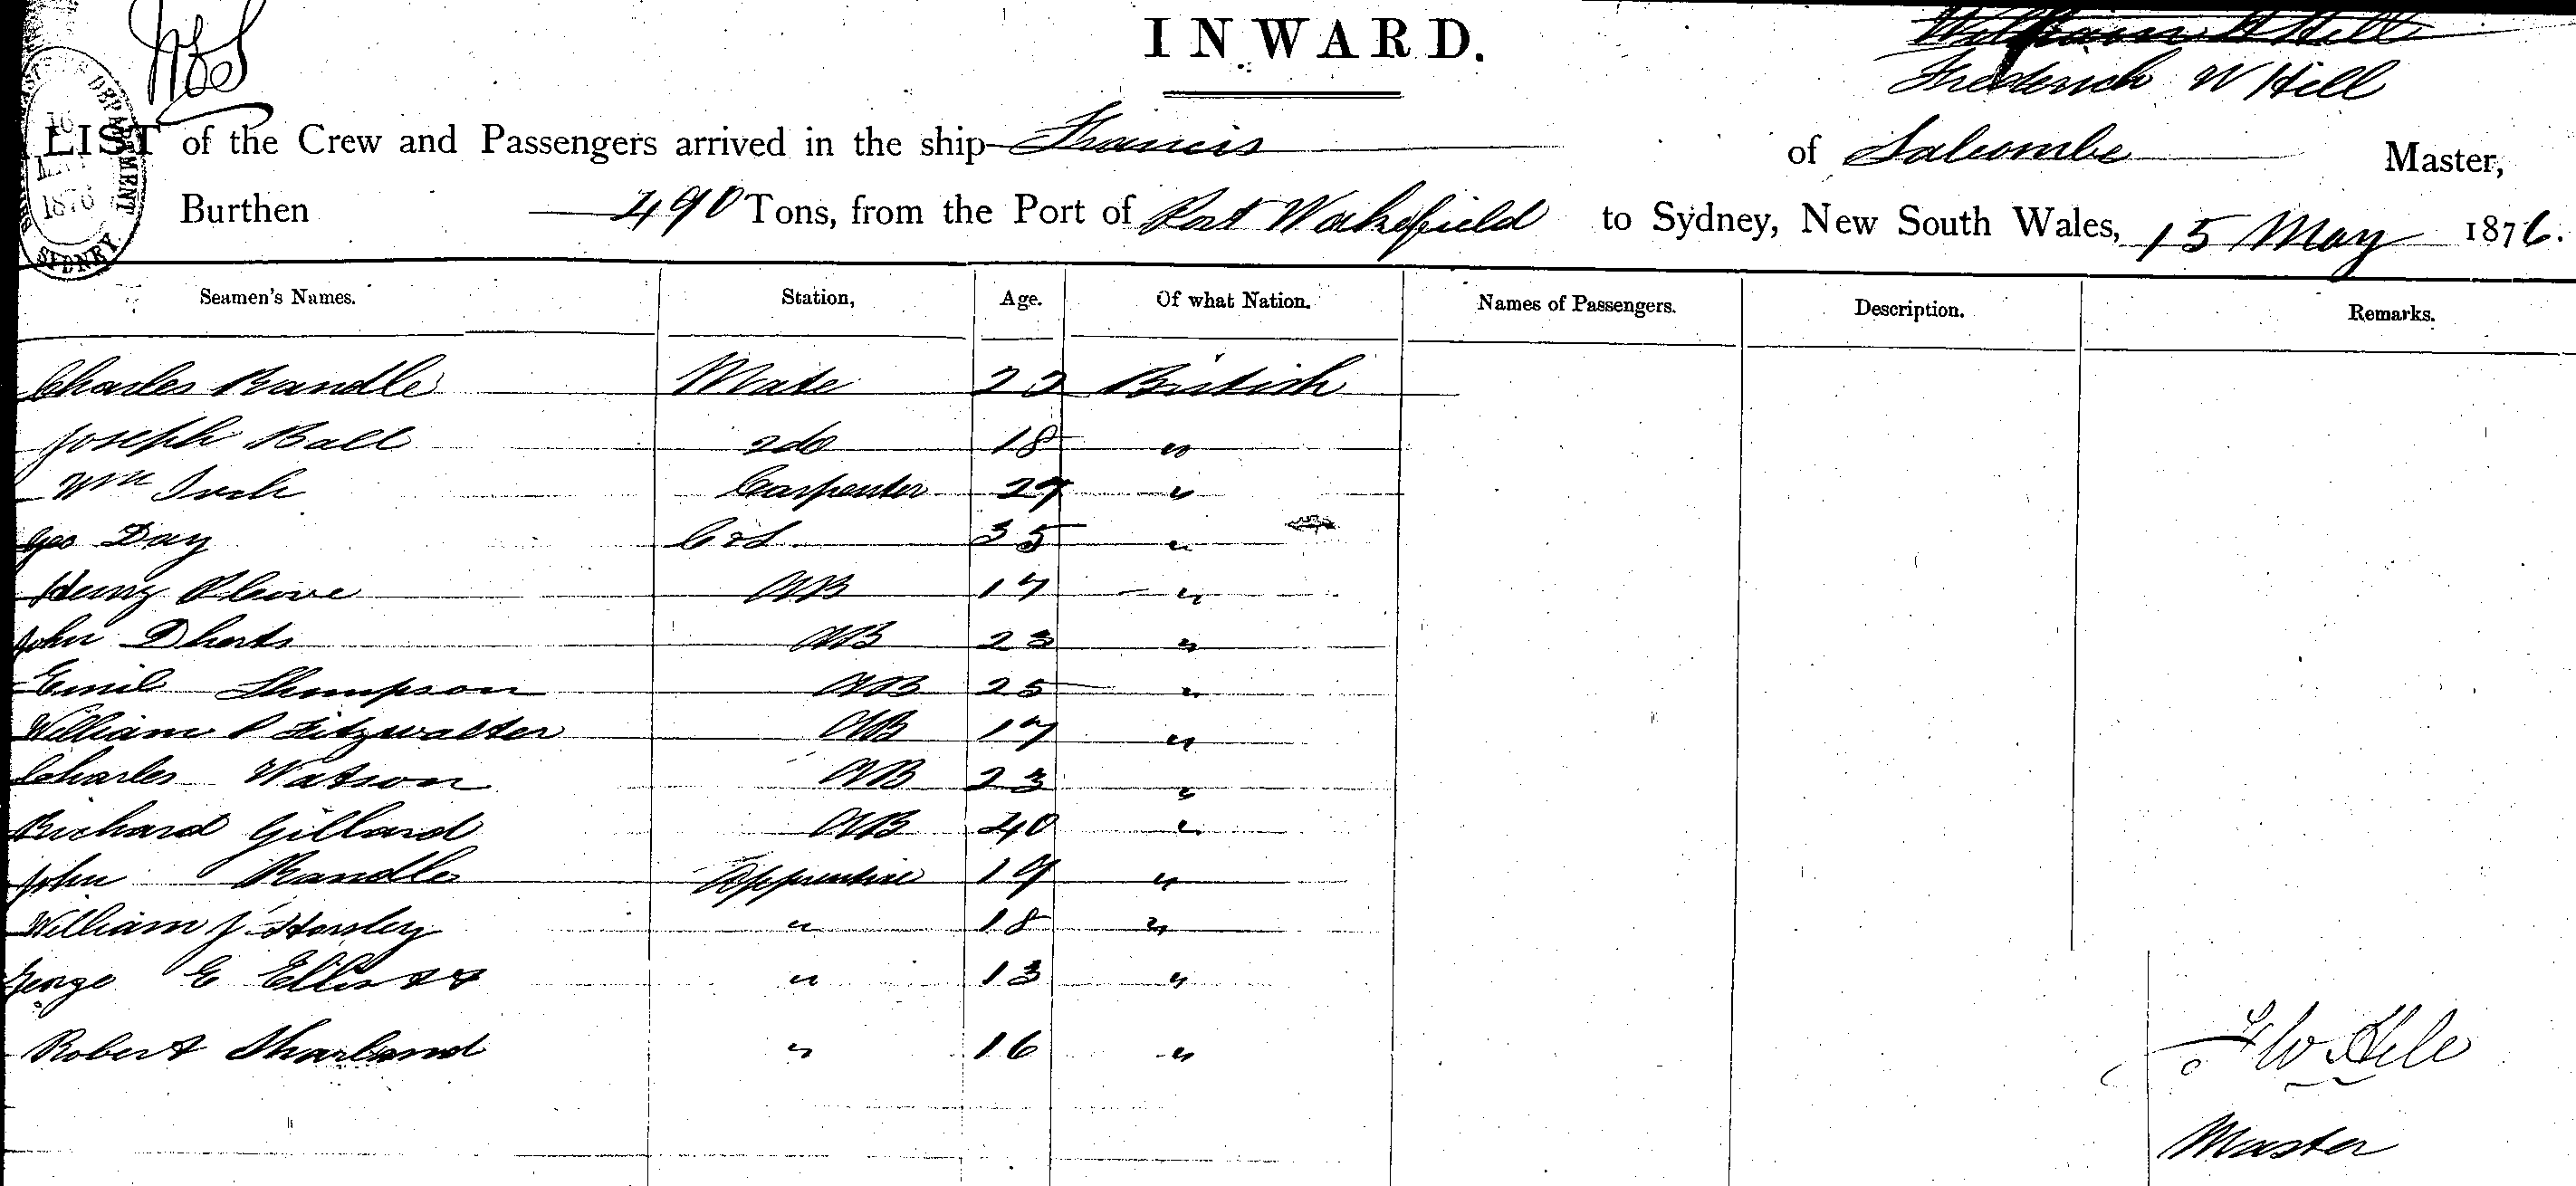 INWARD.
William H Hill
Frederick W Hill
LIST of the Crew and Passengers arrived in the ship Francis of Salcombe Master,
Burthen 490 Tons, from the Port of Port Wakefield to Sydney, New South Wales, 15 May 1876.
DEPARTMENT
1876
SYDNEY
Seamen's Names. Station, Age. Of what Nation. Names of Passengers. Description. Remarks.
Charles Randle Mate 22 British
Joseph Ball 2do 18 "
Wm Inch Carpenter 27 "
Geo Day C&S 35 "
Henry AB 17 "
John AB 23 "
Emil Thompson AB 25 "
William P Fitzwalter AB 17 "
Charles Watson AB 23 "
Richard Gillard AB 40 "
John Randle Apprentice 19 "
William J Horsley " 18 "
George E Elliott " 13 "
Robert Sharland " 16 "
F W Hill
Master